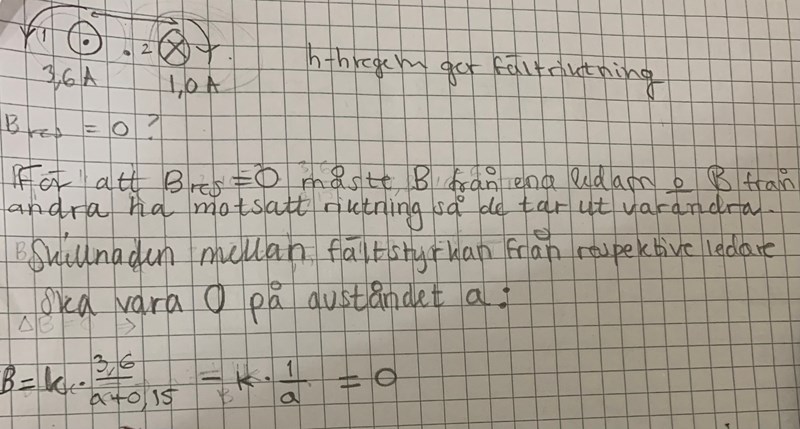 1 2
3,6 A 1,0 A h-hregeln ger fältriktning
Bres = 0?
För att Bres=0 måste B från ena ledarn o B från
andra ha motsatt riktning så de tar ut varandra.
Skillnaden mellan fältstyrkan från respektive ledare
ska vara 0 på avståndet a:
B = k · 3,6 / a+0,15 − k · 1 / a = 0